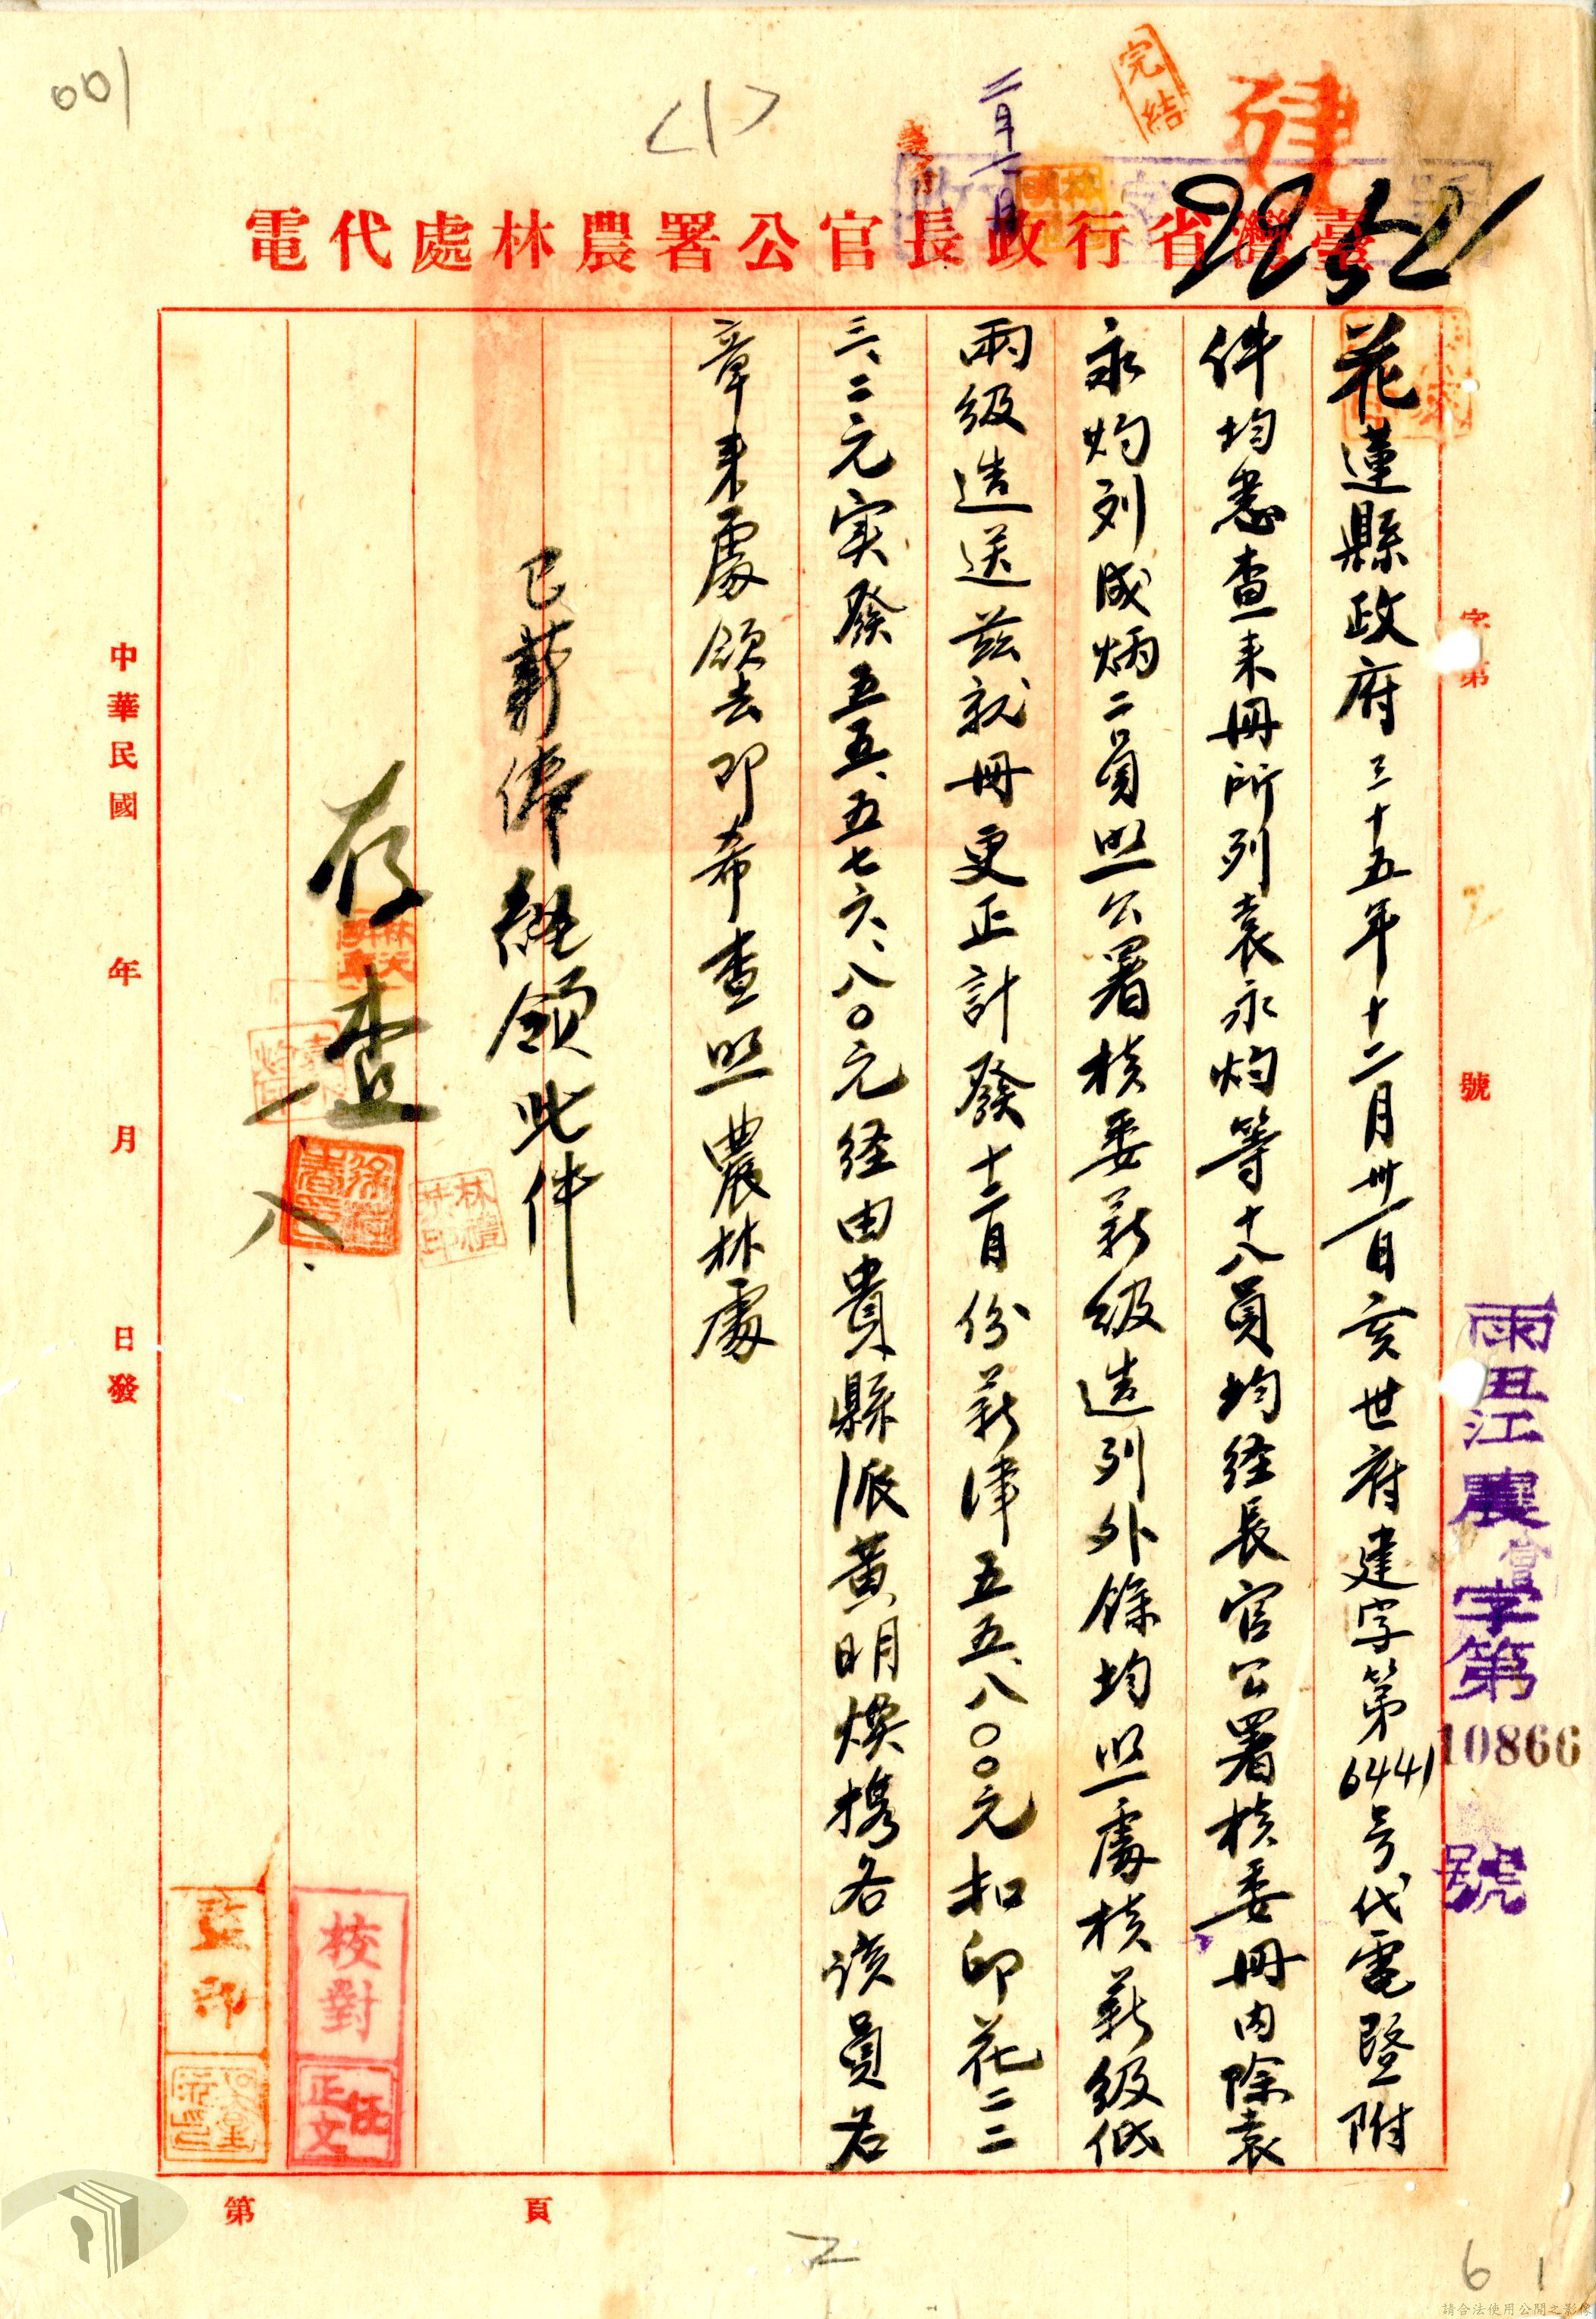 001
<1>
完結
建
二月十一日
9252
臺灣省行政長官公署農林處代電
字第 號
雨丑江農會字第10866號
花蓮縣政府三十五年十二月卅一日亥世府建字第6441号代電暨附
件均悉查来冊所列袁永灼等十八員均経長官公署核委冊内除袁
永灼列成炳二員照公署核委薪級造列外餘均照處核薪級低
兩級造送茲就冊更正計發十二月份薪津五五、八〇〇元扣印花二二
三、二元実發五五、五七六、八〇元経由貴縣派黃明煥攜各該員名
章来處領去即希查照農林處
已薪俸経領此件
存查
一八、
中華民國 年 月 日發
校對
伍正文
監印
第 頁
2
61
請合法使用公開之影像